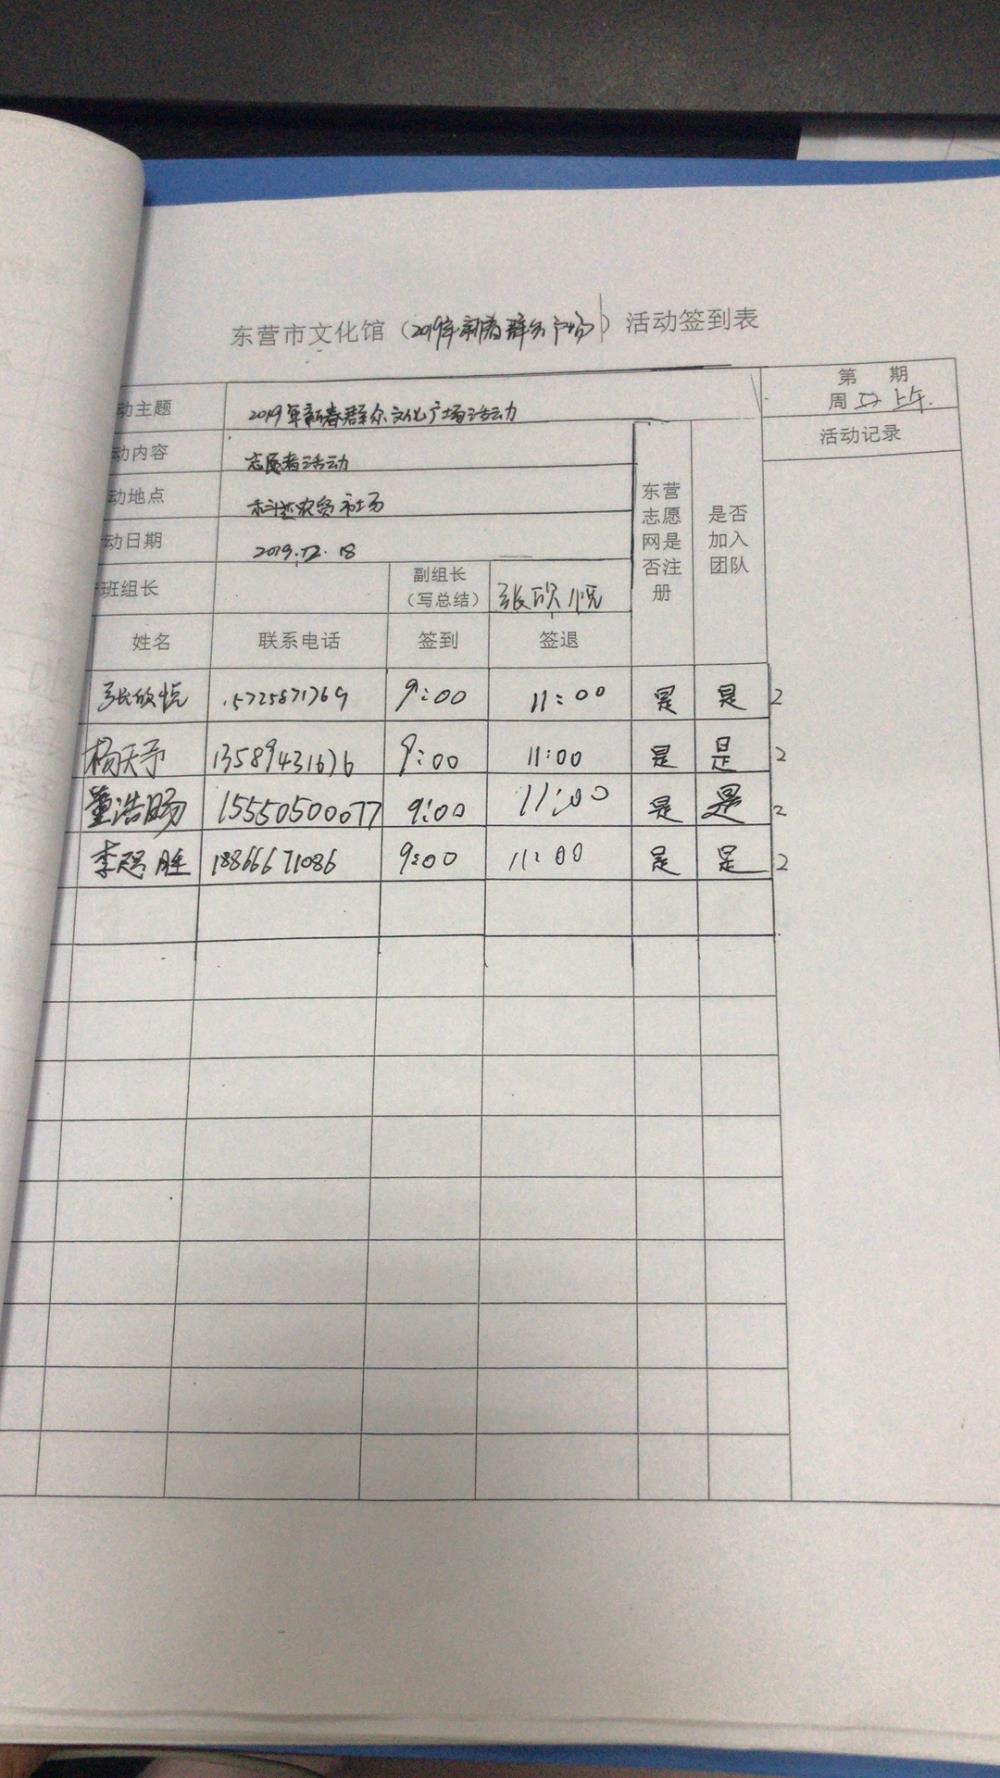 东营市文化馆（2019年新春群众广场）活动签到表
第 期
周 上午.
动主题 2019年新春群众文化广场活动
活动记录
动内容 志愿者活动
动地点 农贸市场
动日期 2019.12.18
东营志愿网是否注册
是否加入团队
班组长 副组长（写总结） 张欣悦
姓名 联系电话 签到 签退
张欣悦 15725871769 9:00 11:00 是 是 2
杨天予 13589431676 9:00 11:00 是 是 2
董浩旸 15550500077 9:00 11:00 是 是 2
李 胜 18866671086 9:00 11:00 是 是 2